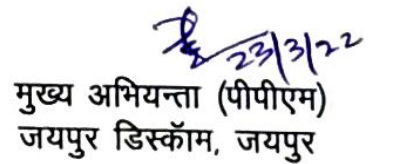 23/3/22
मुख्य अभियन्ता (पीपीएम)
जयपुर डिस्कॉम, जयपुर